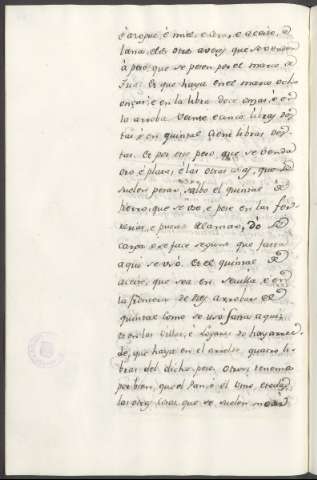 ó arope, é miel, e cera, e aceite, e
lana, é los otros averes que se venden
á peso, que se pesen por el marco, e
que haya en el marco ocho
onzas, e en la libra doce onzas, é en
la arroba veinte e cinco libras des-
tas, é en quintal cient libras des-
tas. Et por este peso, que se venda
oro é plata, é las otras cosas, que se
suelen pesar, salbo el quintal de
fierro, que se use, e pese en las fer-
rerias, e puertos de la mar, do se
carga, e se face segunt que fasta
aqui se usó. Et el quintal de
aceite, que sea en Sevilla, e en
la frontera de diez arrobas el
quintal como se usó fasta aqui:
et en las villas, é logares do hay arrel-
de, que haya en el arrelde quatro li-
bras del dicho peso. Otrosi tenemos
por bien, que el pan, é el vino, e todas
las otras cosas, que se suelen medir